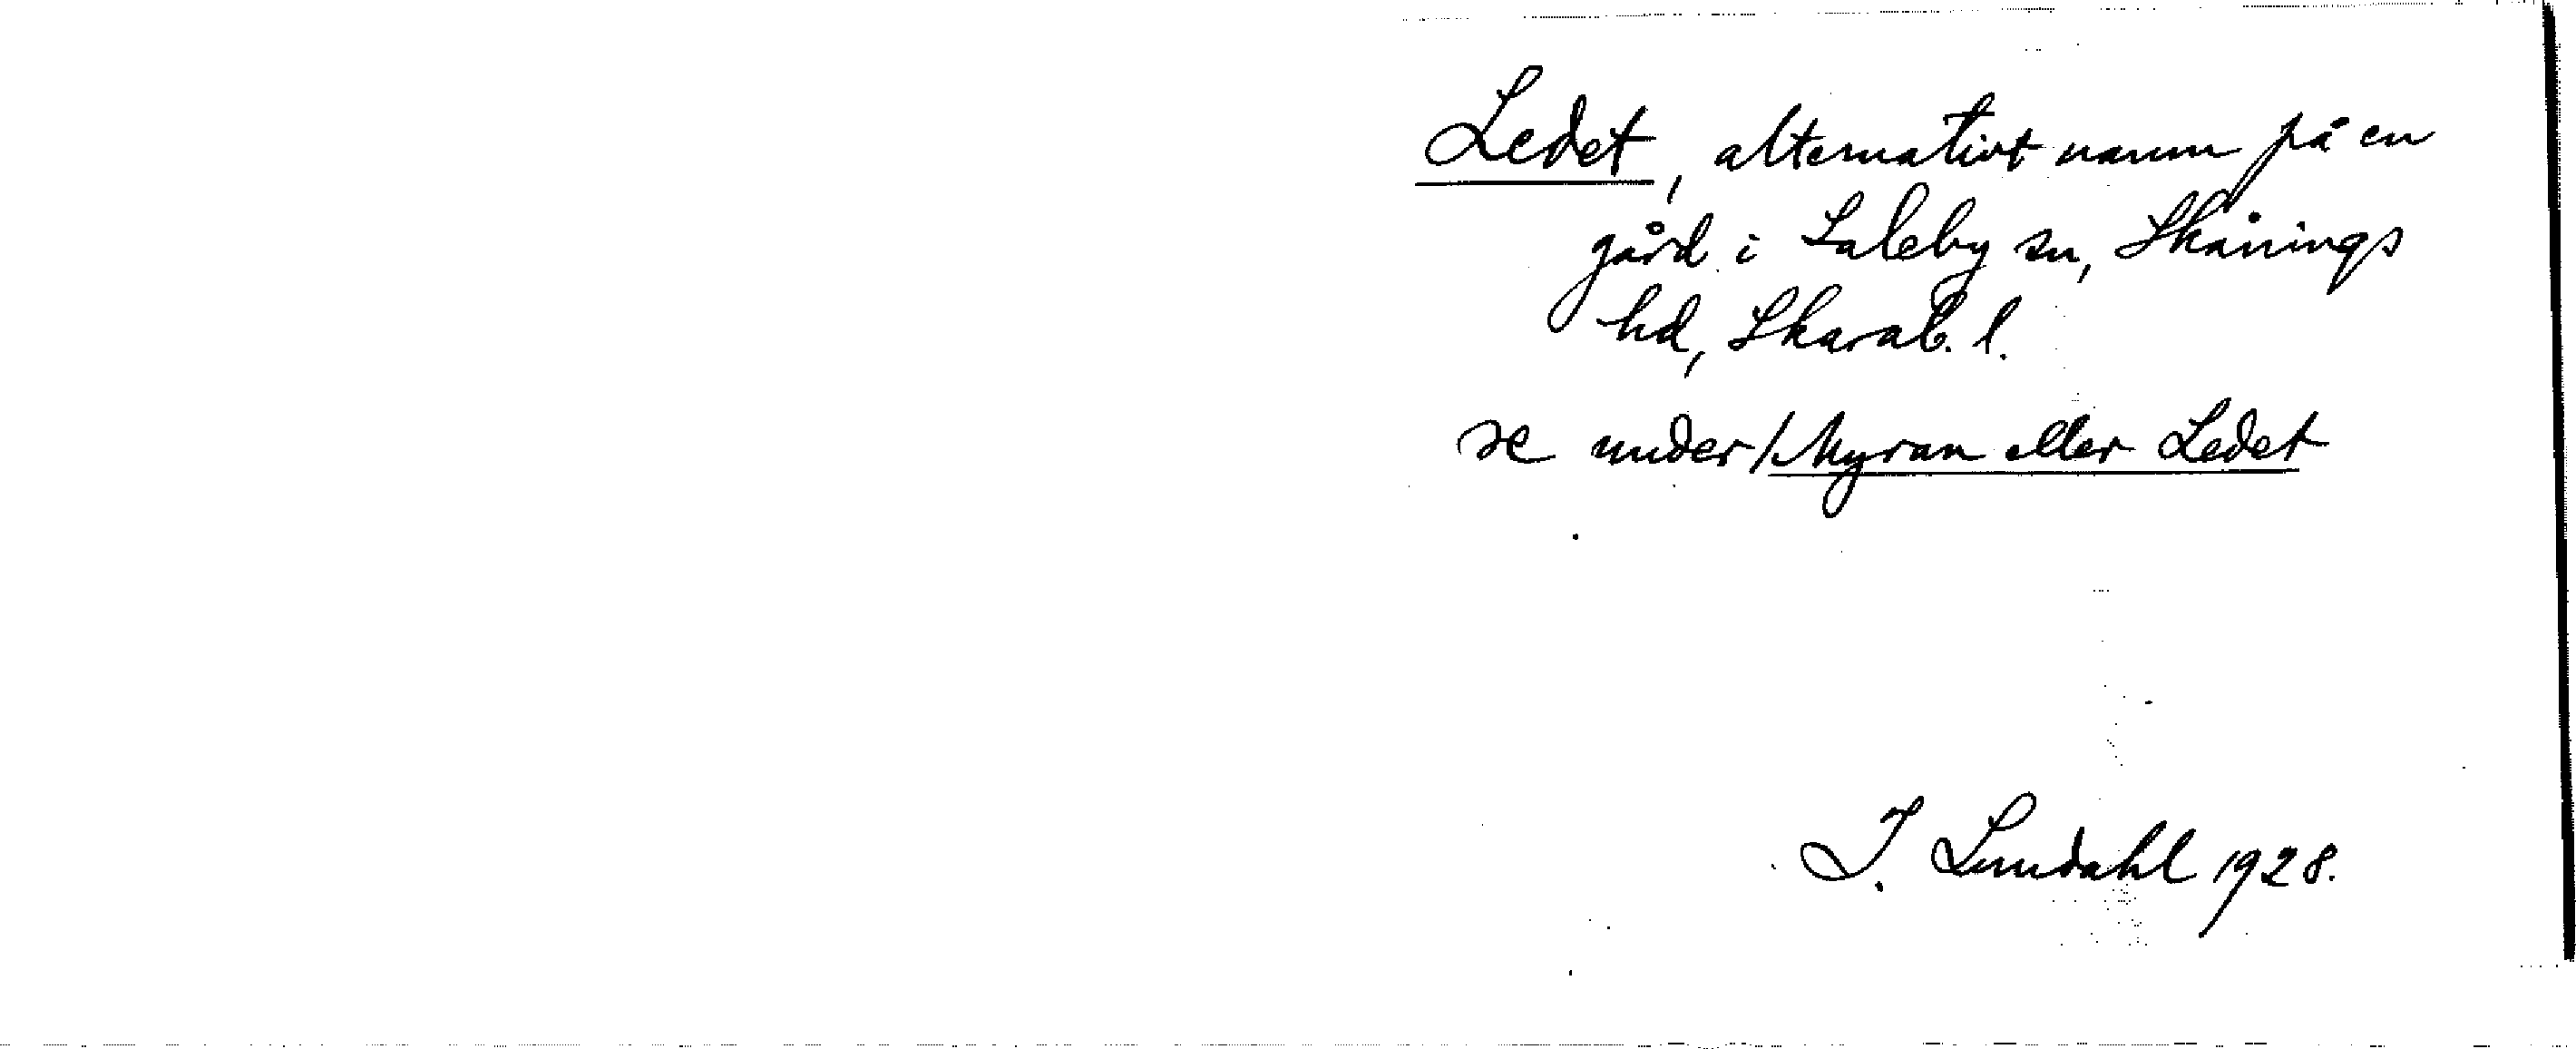 Ledet, alternativt namn på en
gård i Saleby sn, Skånings
hd, Skarab. l.
se under / Myran eller Ledet
I. Lundahl 1928.